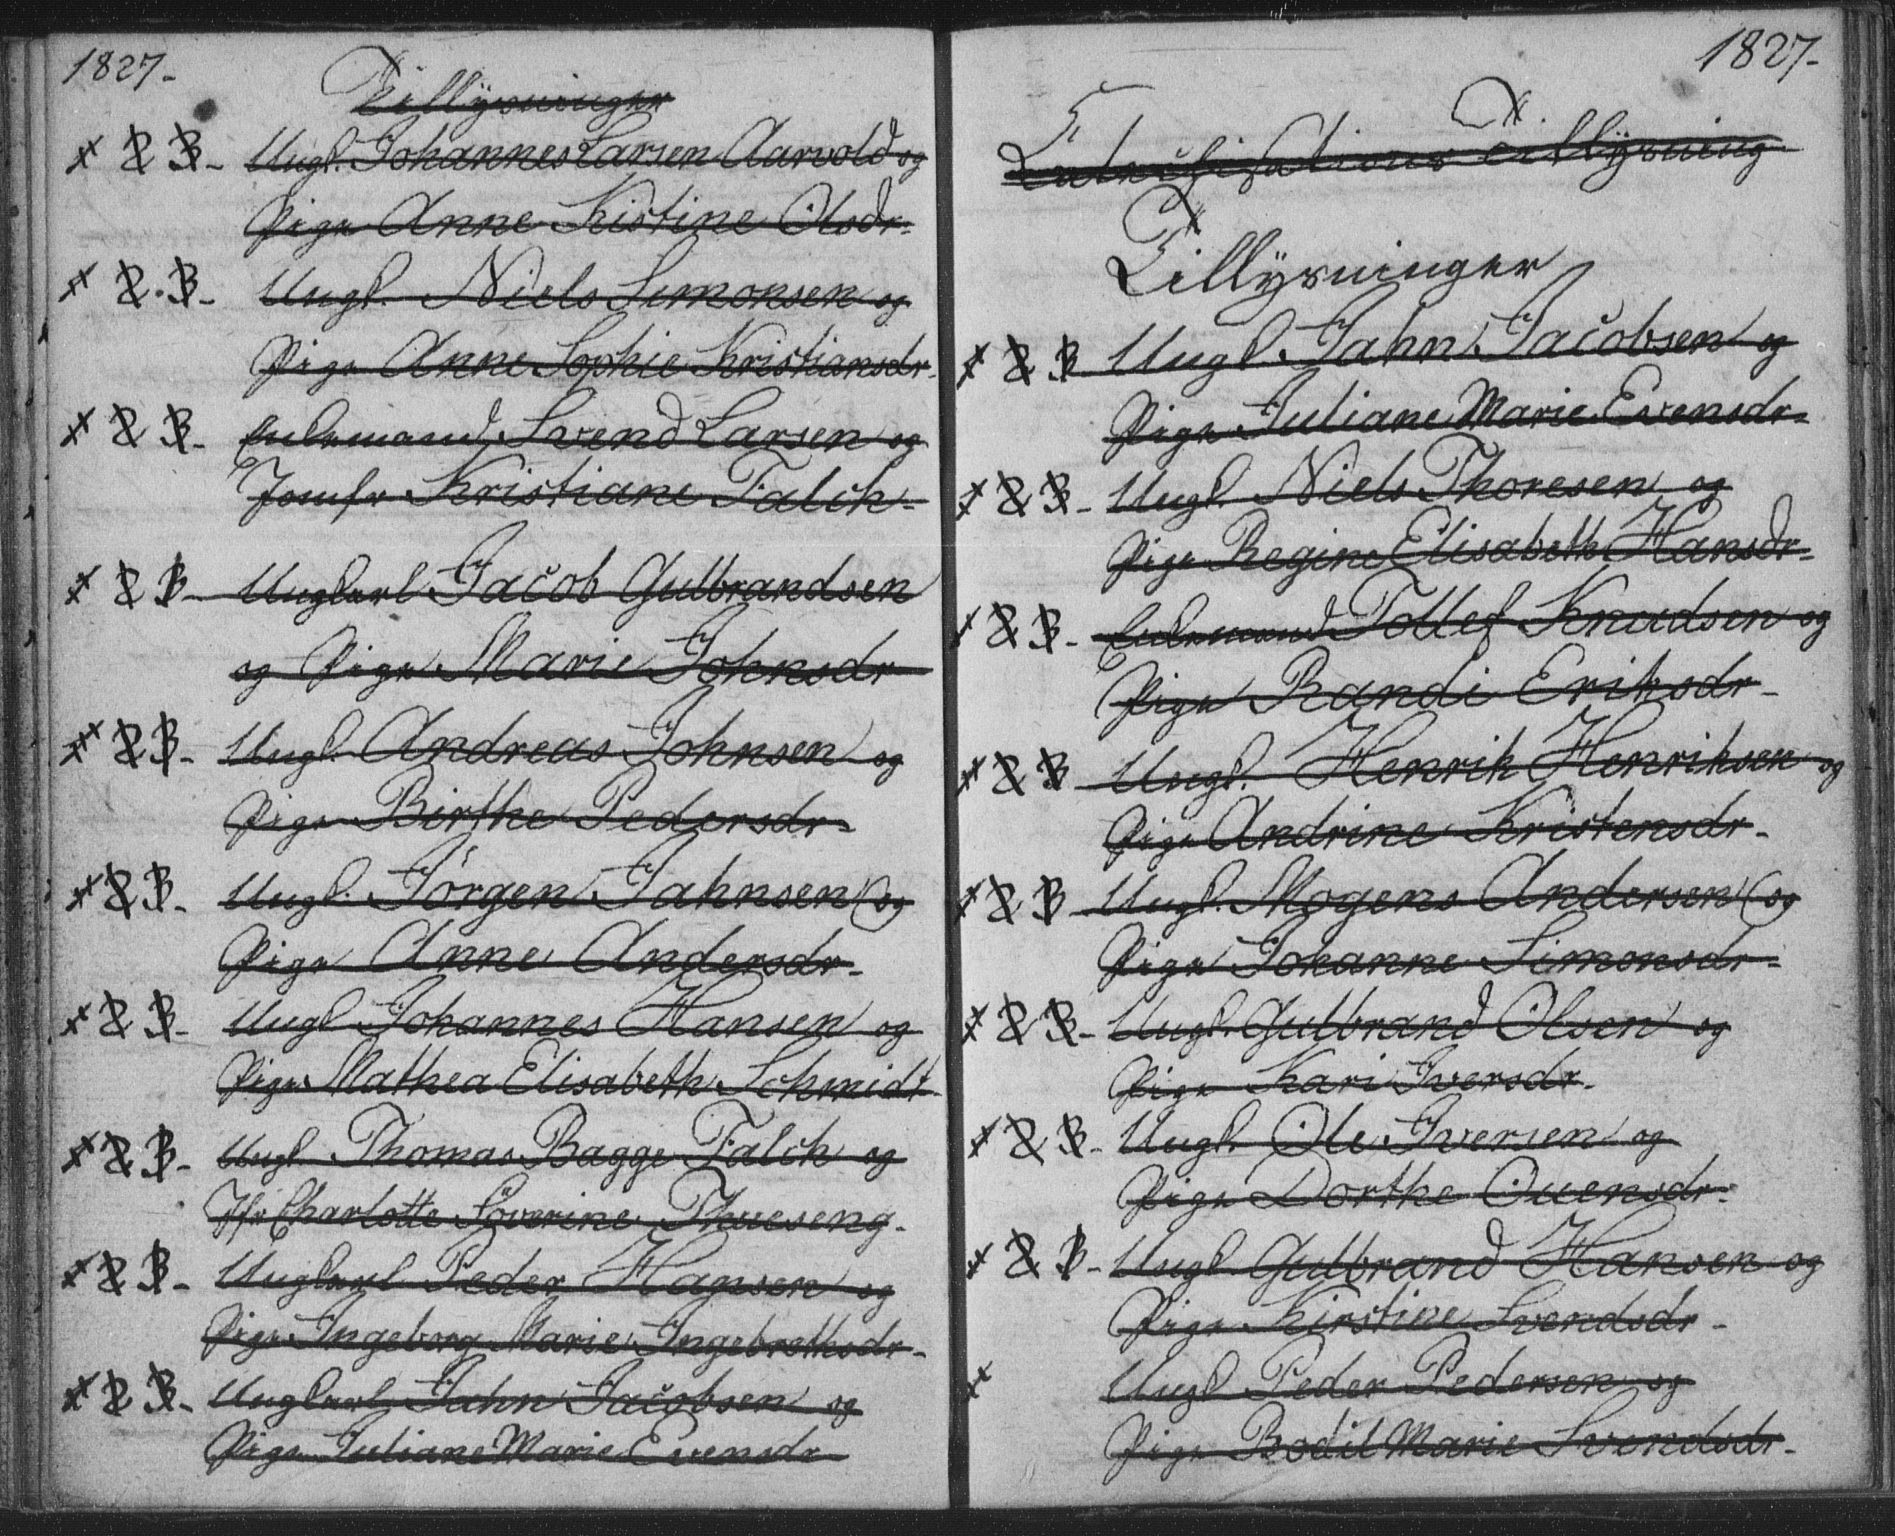 1827.
Tillysninger
Ungk. Johannes Larsen Aarvold og
Pige Anne Kistine Olsdr.
Ungk. Niels Simonsen og
Pige Anne Sophie Kristiansdr.
Enkemand Svend Larsen og
Jomfr Kristiane Falch.
Ungkarl Jacob Gulbrandsen
og Pige Marie Johnsdr
Ungk. Andreas Johnsen og
Pige Birthe Pedersdr.
Ungk. Jörgen Jahnsen og
Pige Anne Andersdr.
Ungk Johannes Hansen og
Pige Mathea Elisabeth Schmidt
Ungk. Thomas Bagge Falch og
Jfr Charlotte Söverine Thueseng.
Ungkarl Peder Hansen og
Pige Ingeborg Marie Ingebrethsdr.
Ungkarl Jahn Jacobsen og
Pige Juliane Marie Evensdr
1827.
Tillysning
Tillysninger
Ungk. Jahn Jacobsen og
Pige Juliane Marie Evensdr.
Ungk. Niels Thoresen og
Pige Regine Elisabeth Hansdr.
Enkemand Tollef Knudsen og
Pige Randi Eriksdr.
Ungk. Henrik Henriksen og
Pige Andrine Kristensdr.
Ungk. Mogens Andersen og
Pige Johanne Simonsdr.
Ungk. Gulbrand Olsen og
Pige Kari Iversdr.
Ungk. Ole Iversen og
Pige Dorthe Ouensdr.
Ungk Gulbrand Hansen og
Pige Kirstine Svendsdr.
Ungk Peder Pedersen og
Pige Bodil Marie Svendsdr.